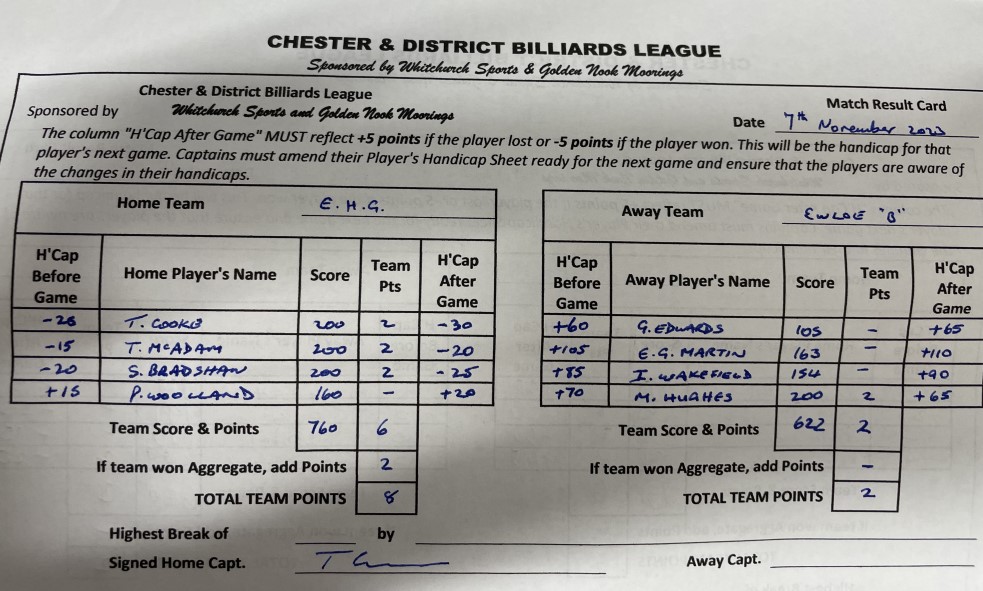 CHESTER & DISTRICT BILLIARDS LEAGUE
Sponsored by Whitchurch Sports & Golden Nook Moorings
Chester & District Billiards League
Match Result Card
Sponsored by Whitchurch Sports and Golden Nook Moorings
Date 7th November 2023
The column "H'Cap After Game" MUST reflect +5 points if the player lost or -5 points if the player won. This will be the handicap for that
player's next game. Captains must amend their Player's Handicap Sheet ready for the next game and ensure that the players are aware of
the changes in their handicaps.
Home Team E.H.G.
H'Cap Before Game Home Player's Name Score Team Pts H'Cap After Game
-25 T. COOKE 200 2 -30
-15 T. McADAM 200 2 -20
-20 S. BRADSHAW 200 2 -25
+15 P. WOOLLAND 160 - +20
Team Score & Points 760 6
If team won Aggregate, add Points 2
TOTAL TEAM POINTS 8
Away Team EWLOE "B"
H'Cap Before Game Away Player's Name Score Team Pts H'Cap After Game
+60 G. EDWARDS 105 - +65
+105 E.G. MARTIN 163 - +110
+85 I. WAKEFIELD 154 - +90
+70 M. HUGHES 200 2 +65
Team Score & Points 622 2
If team won Aggregate, add Points -
TOTAL TEAM POINTS 2
Highest Break of by
Signed Home Capt.
Away Capt.